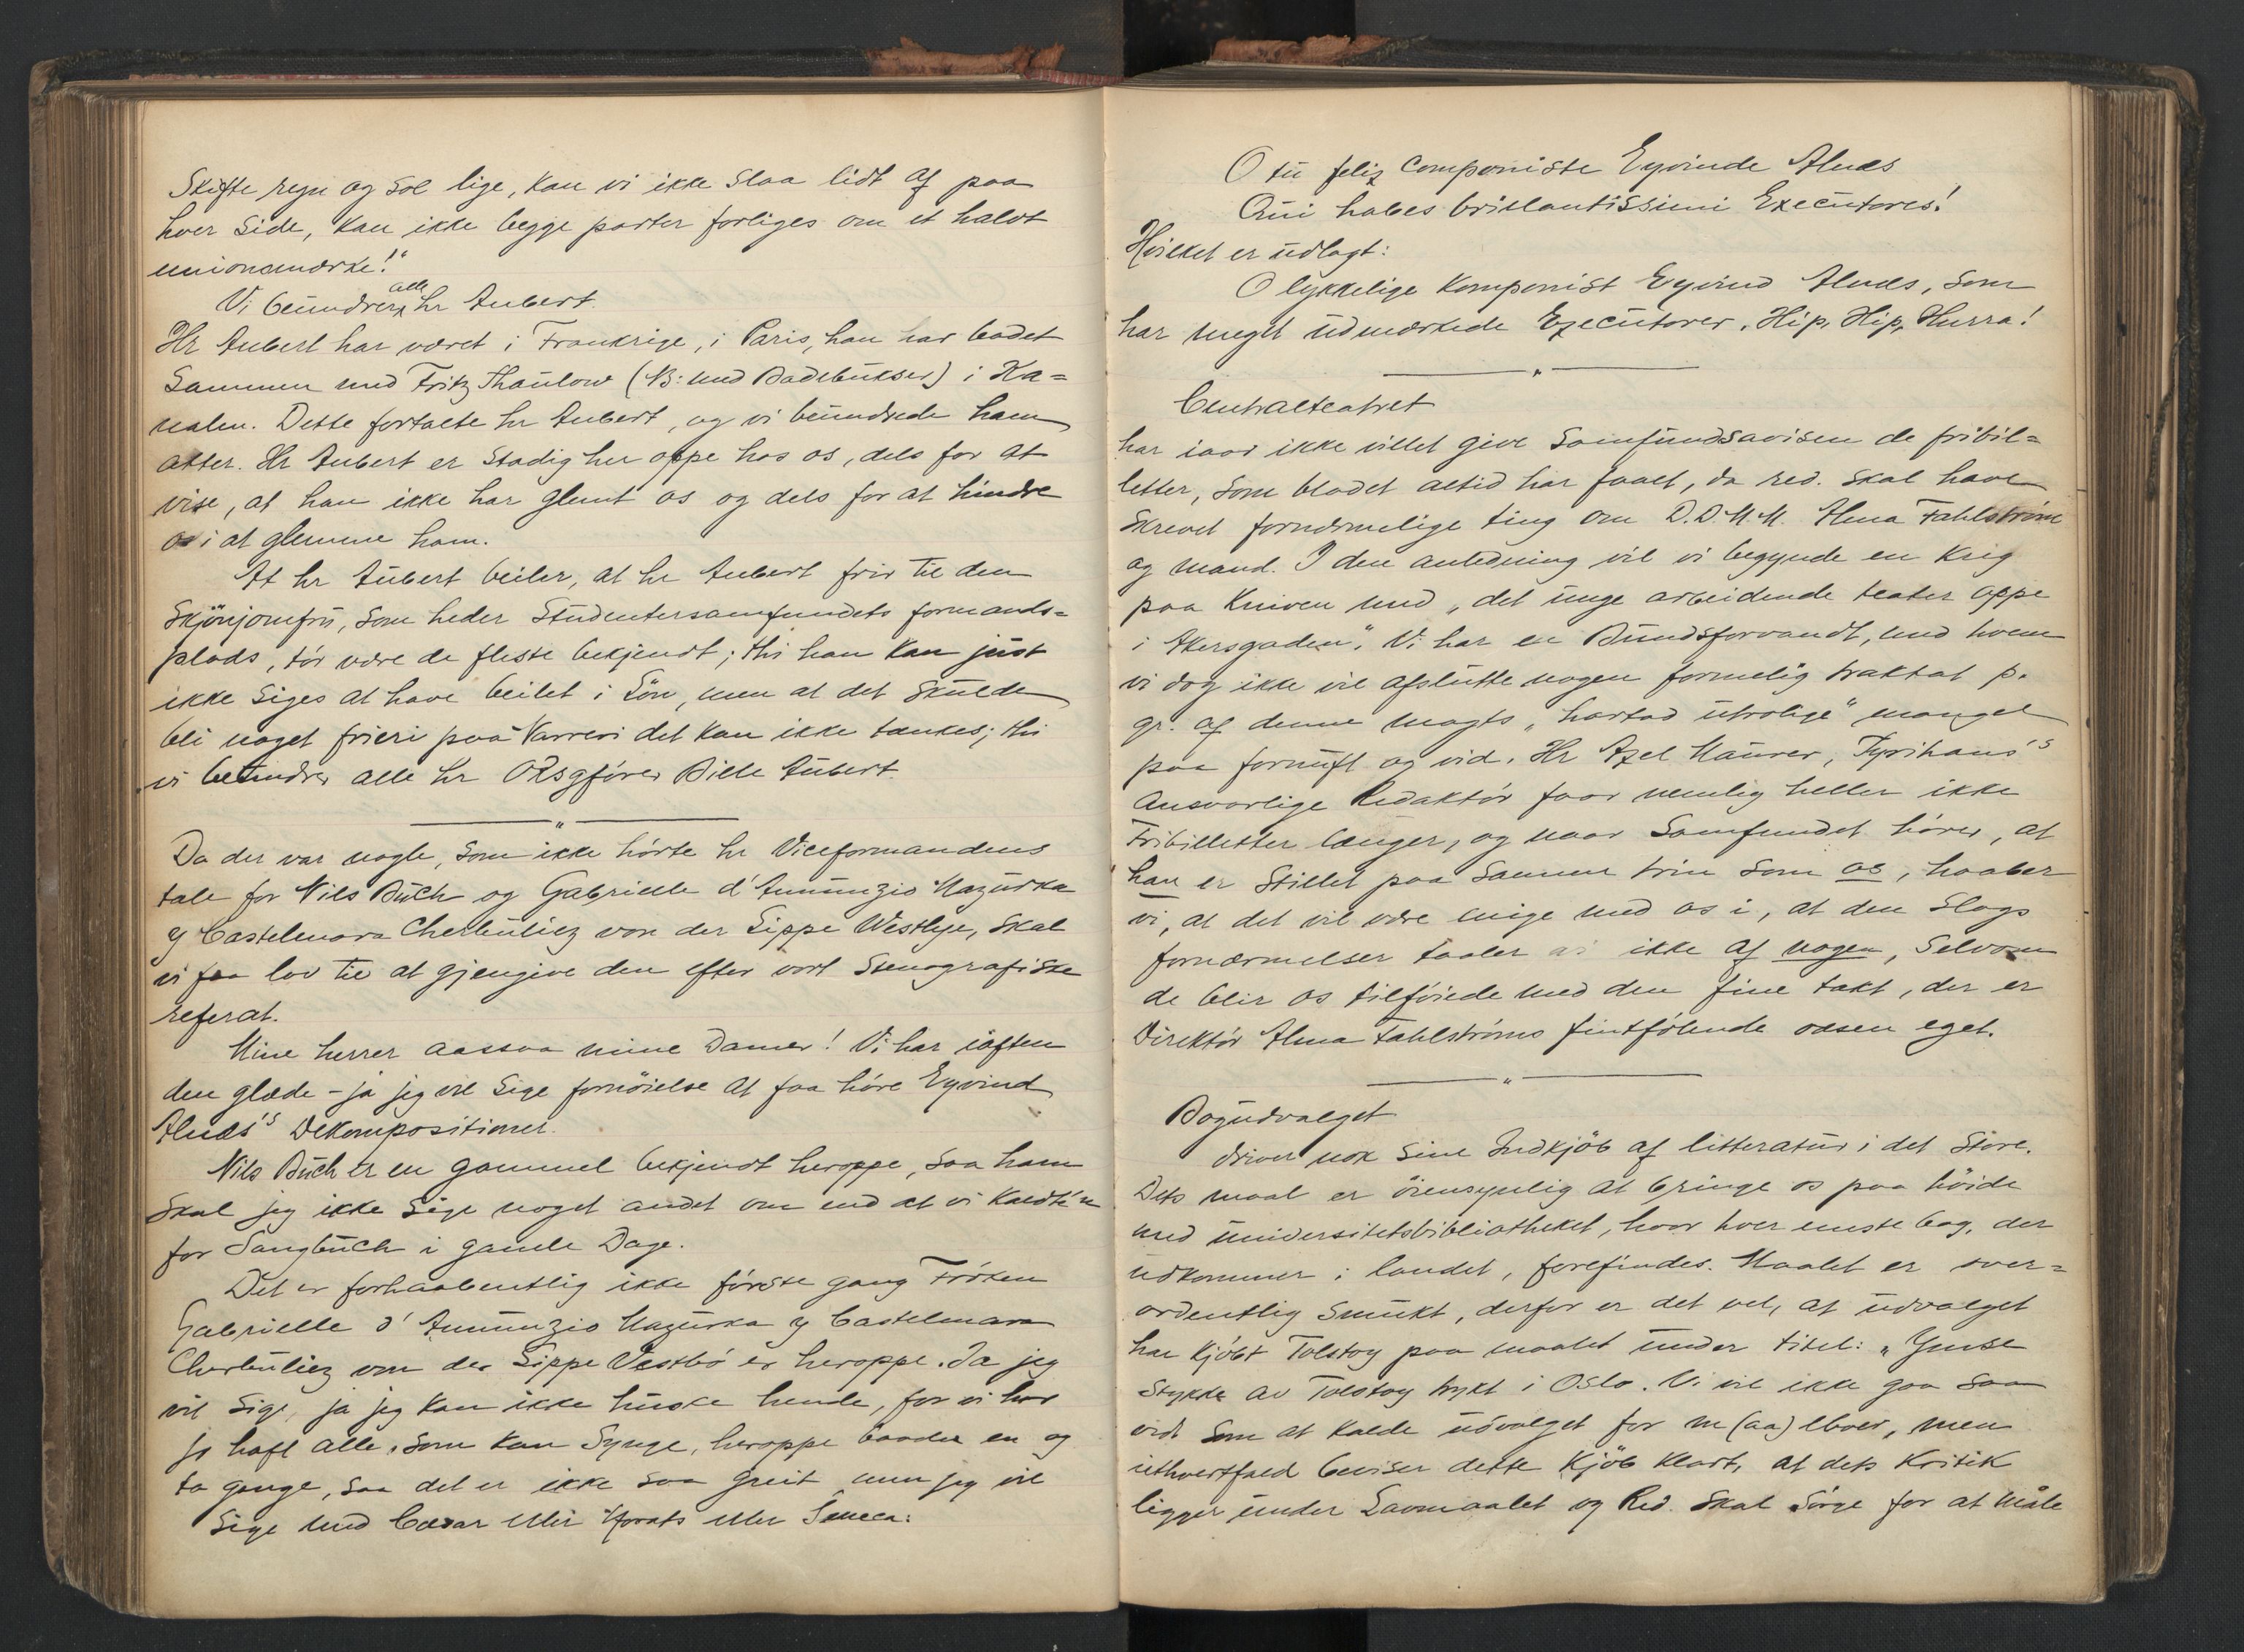 Skifte regn og Sol lige, kan vi ikke Slaa lidt af paa
hver Side, kan ikke begge parter forliges om et halvt
unionsmærke!"
Vi beundrer alle hr Aubert.
Hr Aubert har været i Frankrige, i Paris, han har badet
Sammen med Fritz Thaulow (NB: med Badebukser) i Ka=
nalen. Dette fortalte hr Aubert, og vi beundrede ham
atter. Hr Aubert er Stadig her oppe hos os, dels for at
vise, at han ikke har glemt os og dels for at hindre
os i at glemme ham.
At hr Aubert beiler, at hr Aubert frir til den
Skjönjomfru, Som heder Studentersamfundets formands=
plads, tör være de fleste bekjendt; thi han kan just
ikke Siges at have beilet i Lön, men at det Skulde
bli noget frieri paa Narreri det kan ikke tænkes; thi
vi beundrer alle hr ORsgförer Bille Aubert.
Da der var nogle, Som ikke hörte hr Viceformandens
tale for Nils Buch og Gabrielle d'Annunzio Mazurka
y Castelmara Cherbuliez von der Lippe Westlye, Skal
vi faa lov til at gjengive den efter vort Stenografiske
referat.
Mine herrer aassaa mine Damer! Vi har iaften
den glæde - ja jeg vil Sige fornöielse at faa höre Eyvind
Alnæs's Dekompositioner.
Nils Buch er en gammel bekjendt heroppe, Saa ham
Skal jeg ikke Sige noget andet om end at vi kaldt'n
for Sangbuch i gamle Dage.
Det er forhaabentlig ikke förste gang Fröken
Gabrielle d'Annunzio Mazurka y Castelmara
Cherbuliez von der Lippe Vestbö er heroppe. Ja jeg
vil Sige, ja jeg kan ikke huske hende, for vi har
jo haft alle, Som kan Synge, heroppe baade en og
to gange, Saa det er ikke Saa greit men jeg vil
Sige med Cæsar eller Horats eller Seneca:
O tu felix componiste Eyvinde Alnæs
Qui habes brillantissimi Executores!
Hvilket er udlagt:
O lykkelige Komponist Eyvind Alnæs, Som
har meget udmærkede Executorer, Hip, Hip, Hurra!
Centralteatret
har iaar ikke villet give Samfundsavisen de fribil=
letter, Som bladet altid har faaet, da red. Skal have
Skrevet fornærmelige ting om D.D.M.M. Alma Fahlström
og mand. I den anledning vil vi begynde en Krig
paa Kniven med „det unge arbeidende teater oppe
i Akersgaden". Vi har en Bundsforvandt, med hvem
vi dog ikke vil afslutte nogen formelig traktat p.
gr. af denne magts „hartad utrolige" mangel
paa fornuft og vid. Hr Axel Maurer, Tyrihans's
Ansvarlige Redaktör faar nemlig heller ikke
Fribilletter længer, og naar Samfundet hörer, at
han er Stillet paa Samme trin Som os, haaber
vi, at det vil være enige med os i, at den Slags
fornærmelser taaler ikke af nogen, Selvom
de blir os tilföiede med den fine takt, der er
Direktör Alma Fahlströms fintfölende væsen eget.
Bogudvalget
driver nok Sine Indkjöb af litteratur i det Store.
Dets maal er öiensynlig at bringe os paa höide
med universitetsbibliotheket, hvor hver eneste bog, der
udkommer i landet, forefindes. Maalet er over=
ordentlig Smukt, derfor er det vel, at udvalget
har kjöbt Tolstoy paa maalet under titel: „Ymse
Stykke av Tolstoy trykt i Oslo. Vi vil ikke gaa Saa
vidt Som at kalde udvalget for m(aa)lbær, men
iethvertfald beviser dette kjöb klart, at dets kritik
ligger under Lavmaalet og Red. Skal Sörge for at måle